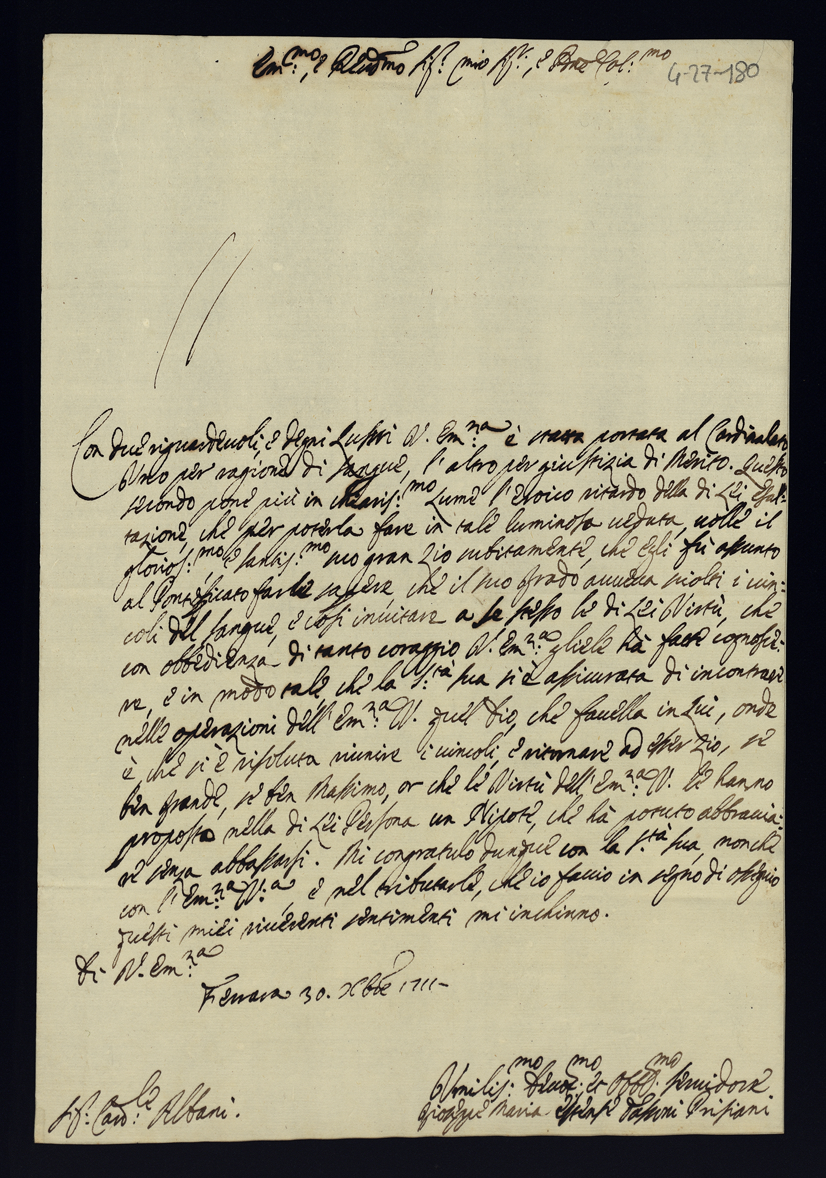 Em:mo, e Reud:mo Sig:r mio Sig:r, e Pne Col:mo
4-27-180
Con due riguardeuoli, e degni Lustri V. Em:za è stata portata al Cardinalato
Vno per ragione di sangue, l'altro per giustizia di Merito. Questo
secondo pone più in chiaris:mo Lume l'eroico ritardo della di Lei Esal-
tazione, che per poterla fare in tale luminosa ueduta, uolle il
glorios:mo e santis:mo suo gran Zio subitamente, che egli fù assunto
al Pontificato farle sapere, che il suo grado aueua sciolti i uin:
coli del sangue, e così inuitare a se stesso le di Lei Virtù, che
con obbedienza di tanto coraggio V. Em:za gliele hà fatte conosce:
re, e in modo tale, che la S:tà sua si è assicurata di incontrare
nelle operazioni dell'Em:za V. quel Dio, che fauella in Lui, onde
è, che si è risoluta riunire i uincoli, e ritornare ad esser Zio, se
ben grande, se ben Massimo, or che le Virtù dell'Em:za V. le hanno
proposto nella di Lei Persona un Nipote, che hà potuto abbraccia:
re senza abbassarsi. Mi congratulo dunque con la S:tà sua, nonche
con l'Em:za V:a, e nel tributarle, che io faccio in segno di ossequio
questi miei riuerenti sentimenti mi inchinno.
Di V. Em:za
Ferrara 30. Xbre 1711-
Vmilis:mo Deuot:mo et Obb:mo seruidore
Sig:r Card:le Albani.
Gioseppe Maria Estense Tassoni Prisiani